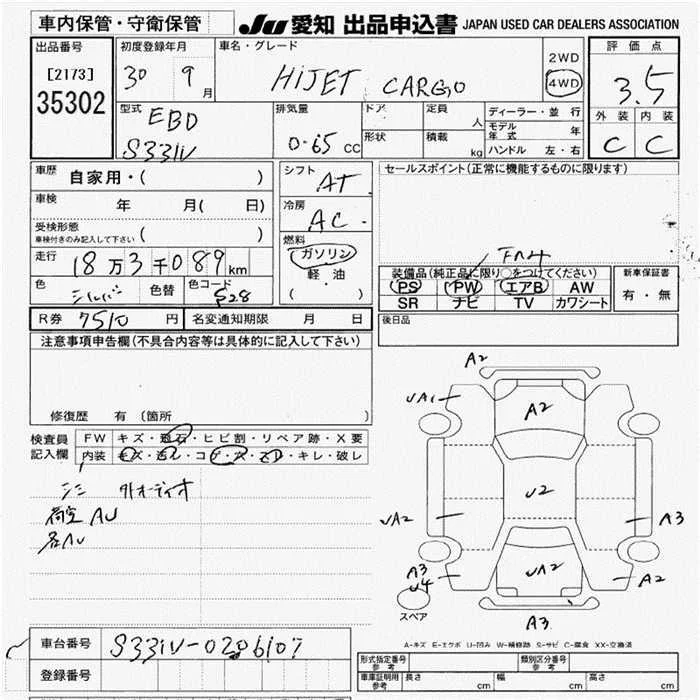 車内保管・守衛保管
JU 愛知 出品申込書 JAPAN USED CAR DEALERS ASSOCIATION
出品番号 初度登録年月 車名・グレード 評価点
[2173] 30 年 9 月 HIJET CARGO 2WD 4WD 3.5
35302
型式 EBD 排気量 0.65 CC ドア 定員 人 ディーラー・並行 外装 内装
モデル年式 年
S331V 形状 積載 kg ハンドル 左・右 C C
車歴 自家用・( ) シフト AT セールスポイント(正常に機能するものに限ります)
車検 年 月( 日) 冷房 AC
受検形態
車検付きのみ記入して下さい 燃料
走行 18万3千089km ガソリン
軽油
( )
装備品(純正品に限り○をつけてください) 新車保証書
色 シルバー 色替 色コード S28 PS PW エアB AW 有・無
SR ナビ TV カワシート
R券 7510 円 名変通知期限 月 日 後日品
注意事項申告欄(不具合内容等は具体的に記入して下さい)
修復歴 有(箇所
検査員 FW キズ・飛石・ヒビ割・リペア跡・X要
記入欄 内装 キズ・汚レ・コゲ・穴・ヌレ・キレ・破レ
シミ 外オーディオ
荷室 AU
各AU
A2
UA1 A2
U2
UA2 A3
A3 UA2 A2
U4
スペア A3
A-キズ E-エクボ U-凹み W-補修跡 S-サビ C-腐食 XX-交換済
車台番号 S331V-0206107
型式指定番号 参考 類別区分番号 参考
登録番号 車庫証明用 参考 長さ cm 幅 cm 高さ cm